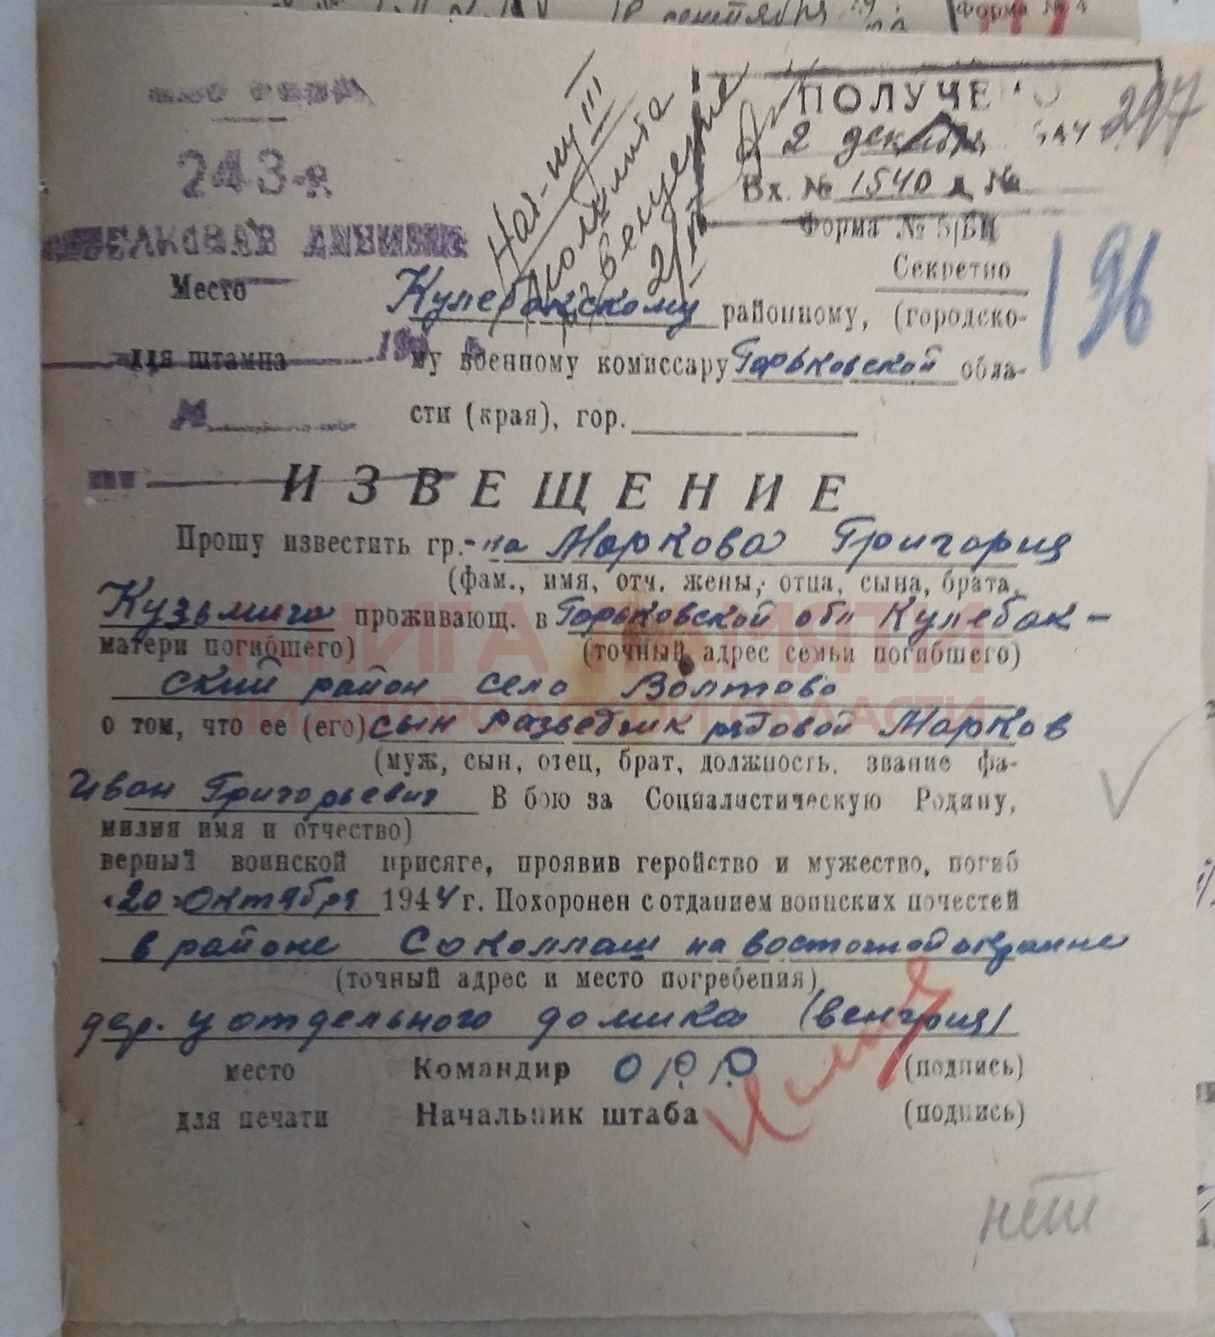 18 сентября
Форма № 4
243-я
ПОЛУЧЕНО
2 декабря 1944
297
Вх. № 1540 д №
Нач-ку III
исполкита
извещение
2/XII
Форма № 5/БИ
Секретно
196
Место
для штампа
Кулебакскому районному, (городско-
му военному комиссару Горьковской обла-
сти (края), гор.
ИЗВЕЩЕНИЕ
Прошу известить гр.-на Маркова Григория
(фам., имя, отч. жены, отца, сына, брата,
Кузьмича проживающ. в Горьковской обл Кулебак-
матери погибшего) (точный адрес семьи погибшего)
ский район село Волтово
о том, что ее (его) сын разведчик рядовой Марков
(муж, сын, отец, брат, должность, звание фа-
Иван Григорьевич В бою за Социалистическую Родину,
милия имя и отчество)
верный воинской присяге, проявив геройство и мужество, погиб
«20» октября 1944 г. Похоронен с отданием воинских почестей
в районе Соколлаш на восточной окраине
(точный адрес и место погребения)
дер. у отдельного домика (венгрия)
место Командир О.Р.Р (подпись)
для печати Начальник штаба (подпись)
нет
КНИГА ПАМЯТИ
НИЖЕГОРОДСКОЙ ОБЛАСТИ